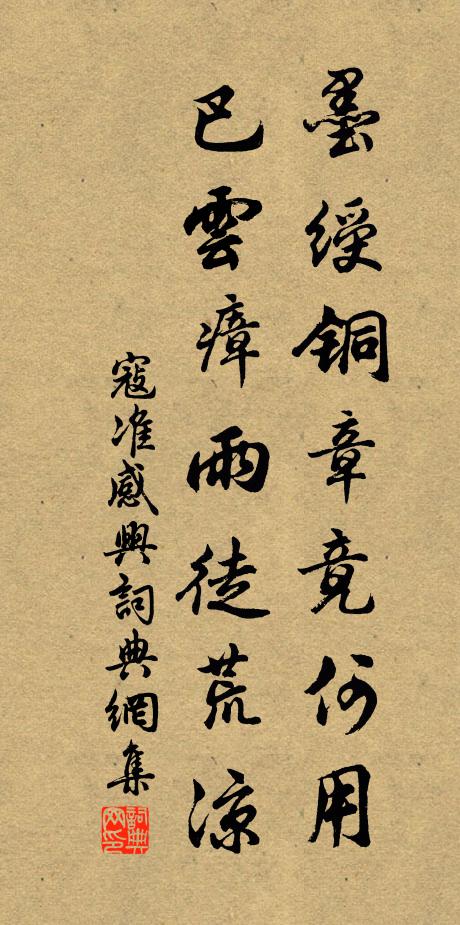 墨綬銅章竟何用
巴雲瘴雨徒荒涼
寇准感興詞典網集
詞典网印